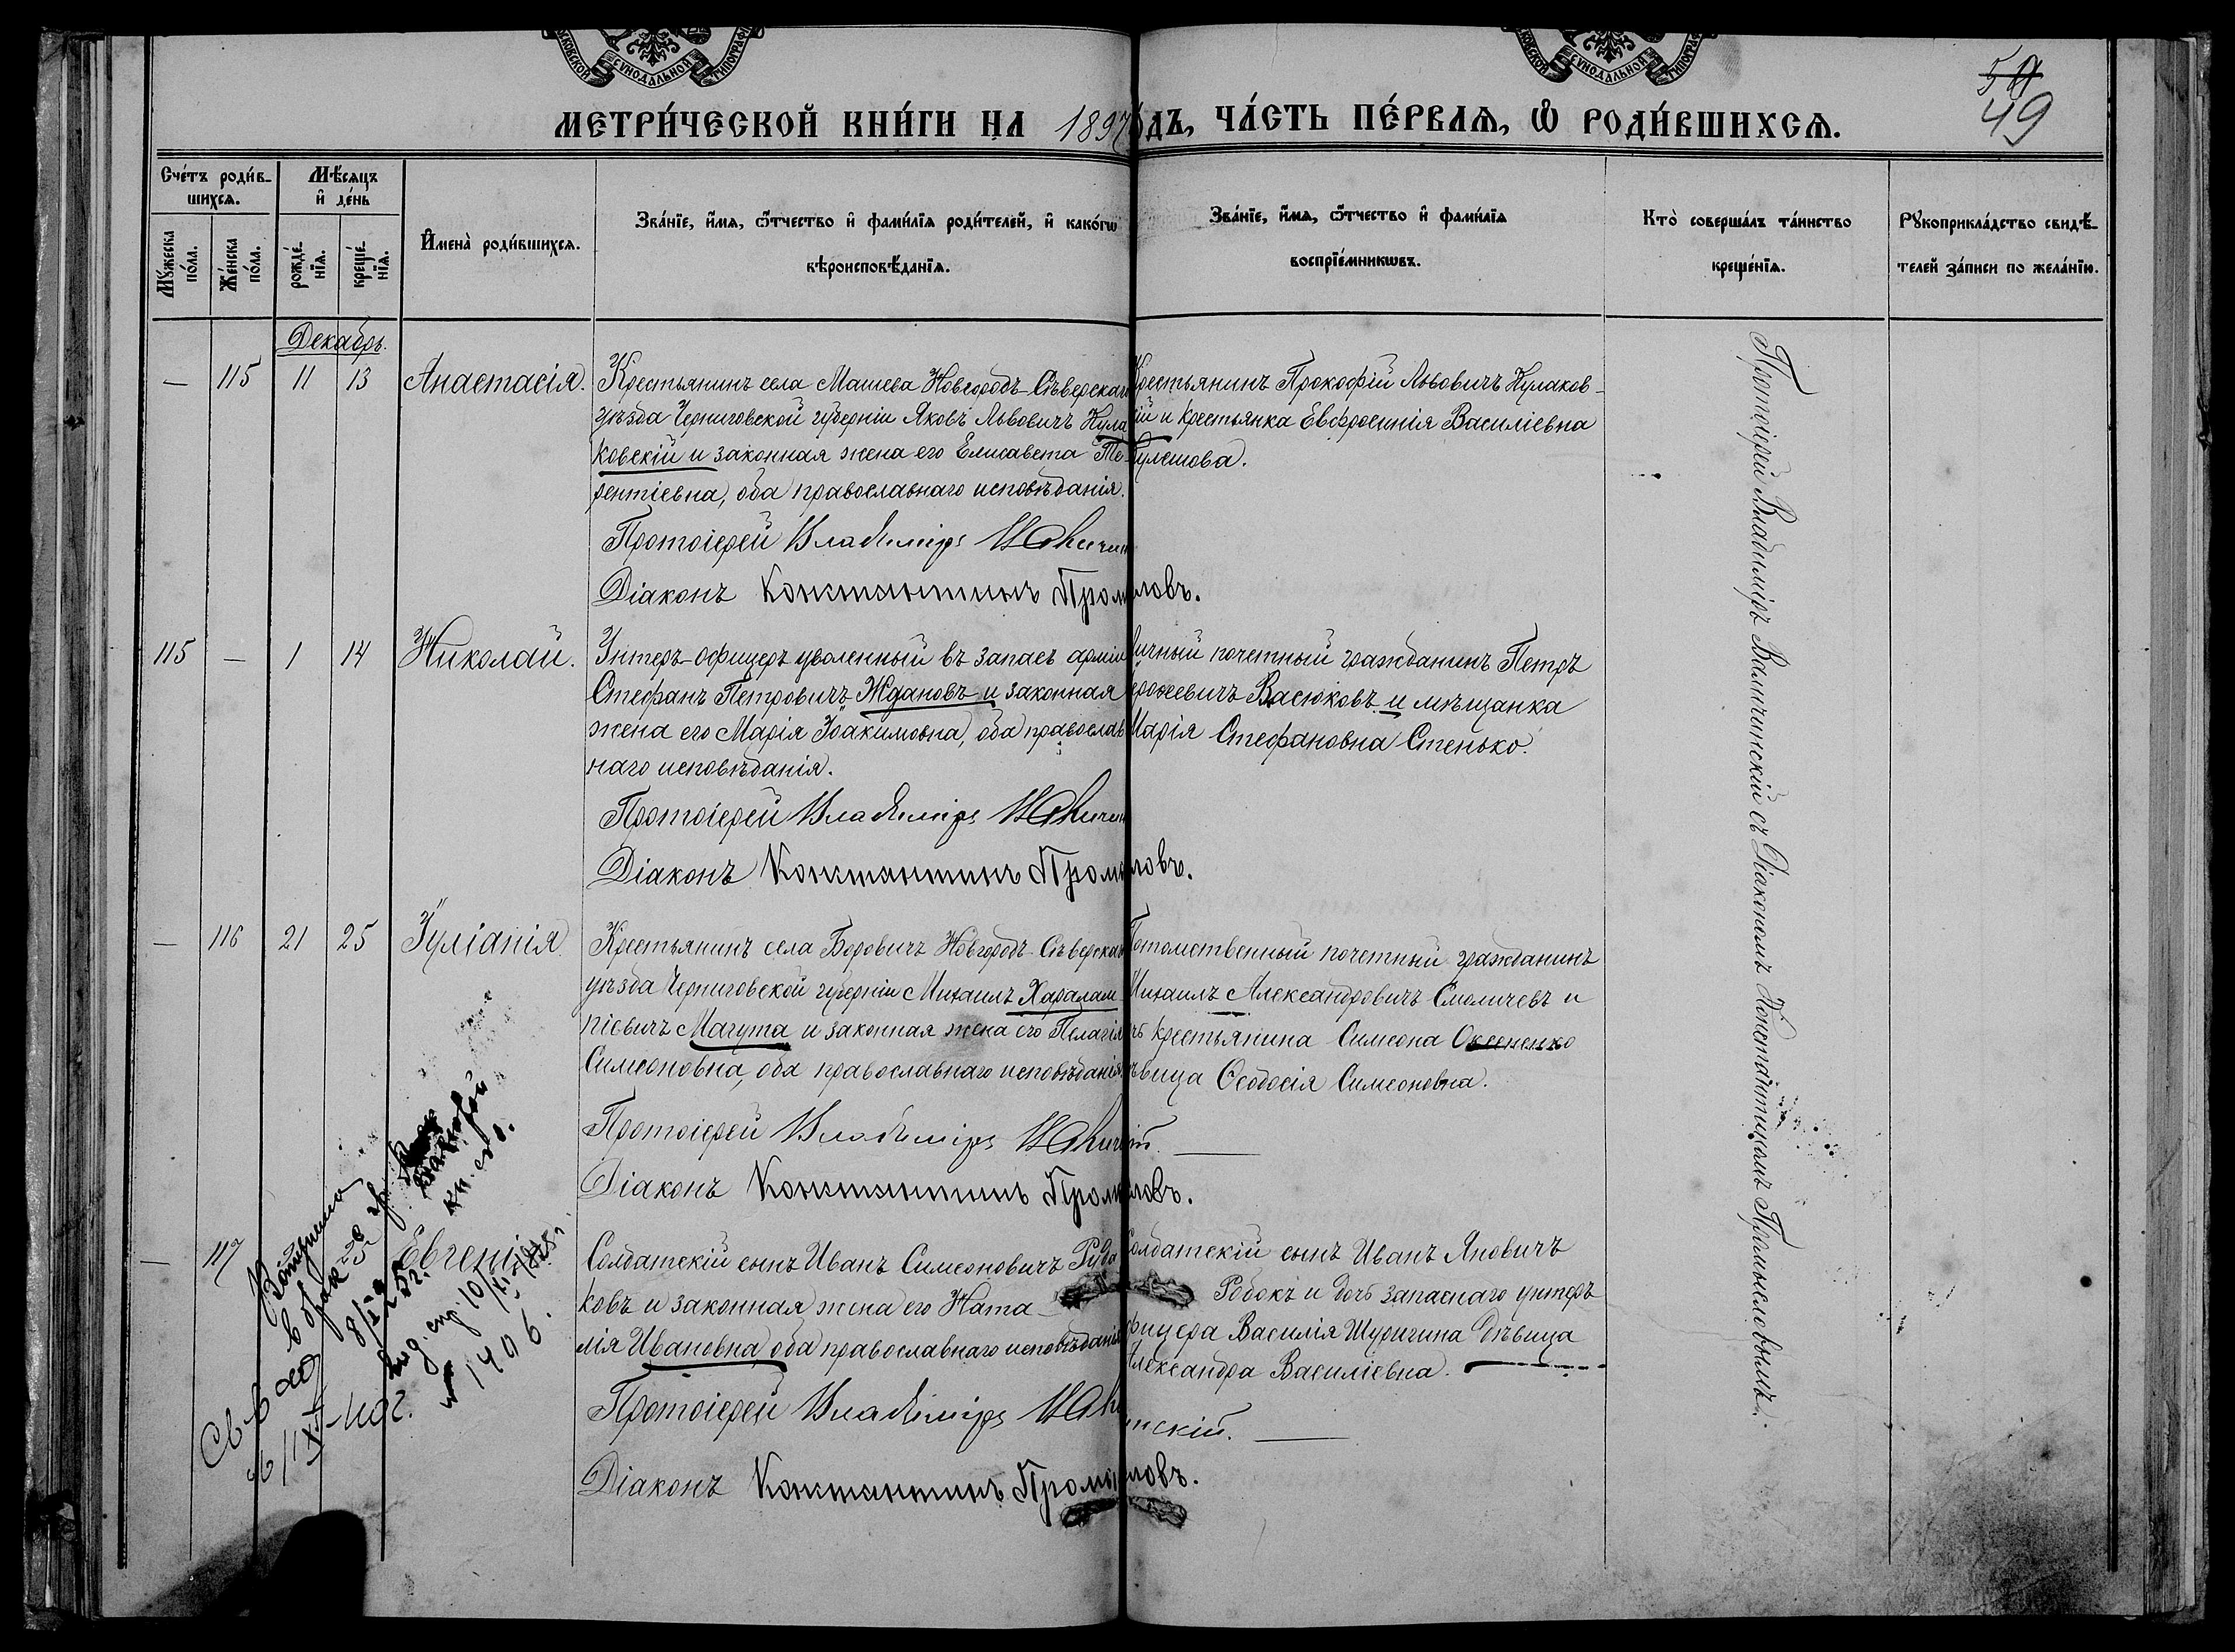 МОСКОВСКОЙ СѴНОДАЛЬНОЙ ТИПОГРАФ
МОСКОВСКОЙ СѴНОДАЛЬНОЙ ТИПОГРАФ
50
49
МЕТРИ́ЧЕСКОЙ КНИ́ГИ НА 1897 ГО́ДЪ, ЧА́СТЬ ПЕ́РВАѦ, Ѡ҆ РОДИ́ВШИХСѦ.
Сче́тъ роди́в-
шихсѧ.
Мѣ́сѧцъ
и҆ де́нь
Мꙋ́жеска
по́ла.
Же́нска
по́ла.
рожде́-
нїѧ.
креще́-
нїѧ.
И҆мена̀ роди́вшихсѧ.
Зва́нїе, и҆́мѧ, ѻ҆́тчество и҆ фами́лїѧ роди́телей, и҆ како́гѡ
вѣроисповѣ́данїѧ.
Зва́нїе, и҆́мѧ, ѻ҆́тчество и҆ фами́лїѧ
воспрїе́мникѡвъ.
Кто̀ соверша́лъ та́инство
креще́нїѧ.
Рꙋкоприкла́дство свидѣ́-
телей за́писи по жела́нїю.
Декабрь.
— 115 11 13 Анастасія.
Крестьянинъ села Машева Новгородъ-Сѣверскаго
уѣзда Черниговской губерніи Яковъ Львовичъ Кула
ковскій и законная жена его Елисавета Те-
рентіевна, оба православнаго исповѣданія.
Протоіерей Владиміръ
Діаконъ Константинъ Промысловъ.
Крестьянинъ Прокофій Львовичъ Кулаков-
скій и крестьянка Евфросинія Василіевна
Кулешова.
115 — 1 14 Николай.
Унтеръ-офицеръ уволенный въ запасъ арміи
Стефанъ Петровичъ Ждановъ и законная
жена его Марія Іоакимовна, оба православ
наго исповѣданія.
Протоіерей Владиміръ
Діаконъ Константинъ Промысловъ.
Личный почетный гражданинъ Петръ
Васюковъ и мѣщанка
Марія Стефановна Стенько.
— 116 21 25 Іуліанія.
Крестьянинъ села Боровичъ Новгородъ-Сѣверскаго
уѣзда Черниговской губерніи Михаилъ Харалам
піевичъ Магута и законная жена его Пелагія
Симеоновна, оба православнаго исповѣданія.
Протоіерей Владиміръ
Діаконъ Константинъ Промысловъ.
Потомственный почетный гражданинъ
Михаилъ Александровичъ Смоличевъ и
дочь крестьянина Симеона Оксененко
дѣвица Ѳеодосія Симеоновна.
— 117 Евгенія
Солдатскій сынъ Иванъ Симеоновичъ Руда
ковъ и законная жена его Ната-
лія Ивановна, оба православнаго исповѣданія
Протоіерей Владиміръ
Діаконъ Константинъ Промысловъ.
Солдатскій сынъ Иванъ Яновичъ
Робокъ и дочь запаснаго унтеръ
офицера Василія Шуригина дѣвица
Александра Василіевна.
нскій.
в брак
1406.
Протоіерей Владиміръ Величинскій съ Діакономъ Константиномъ Промысловымъ.